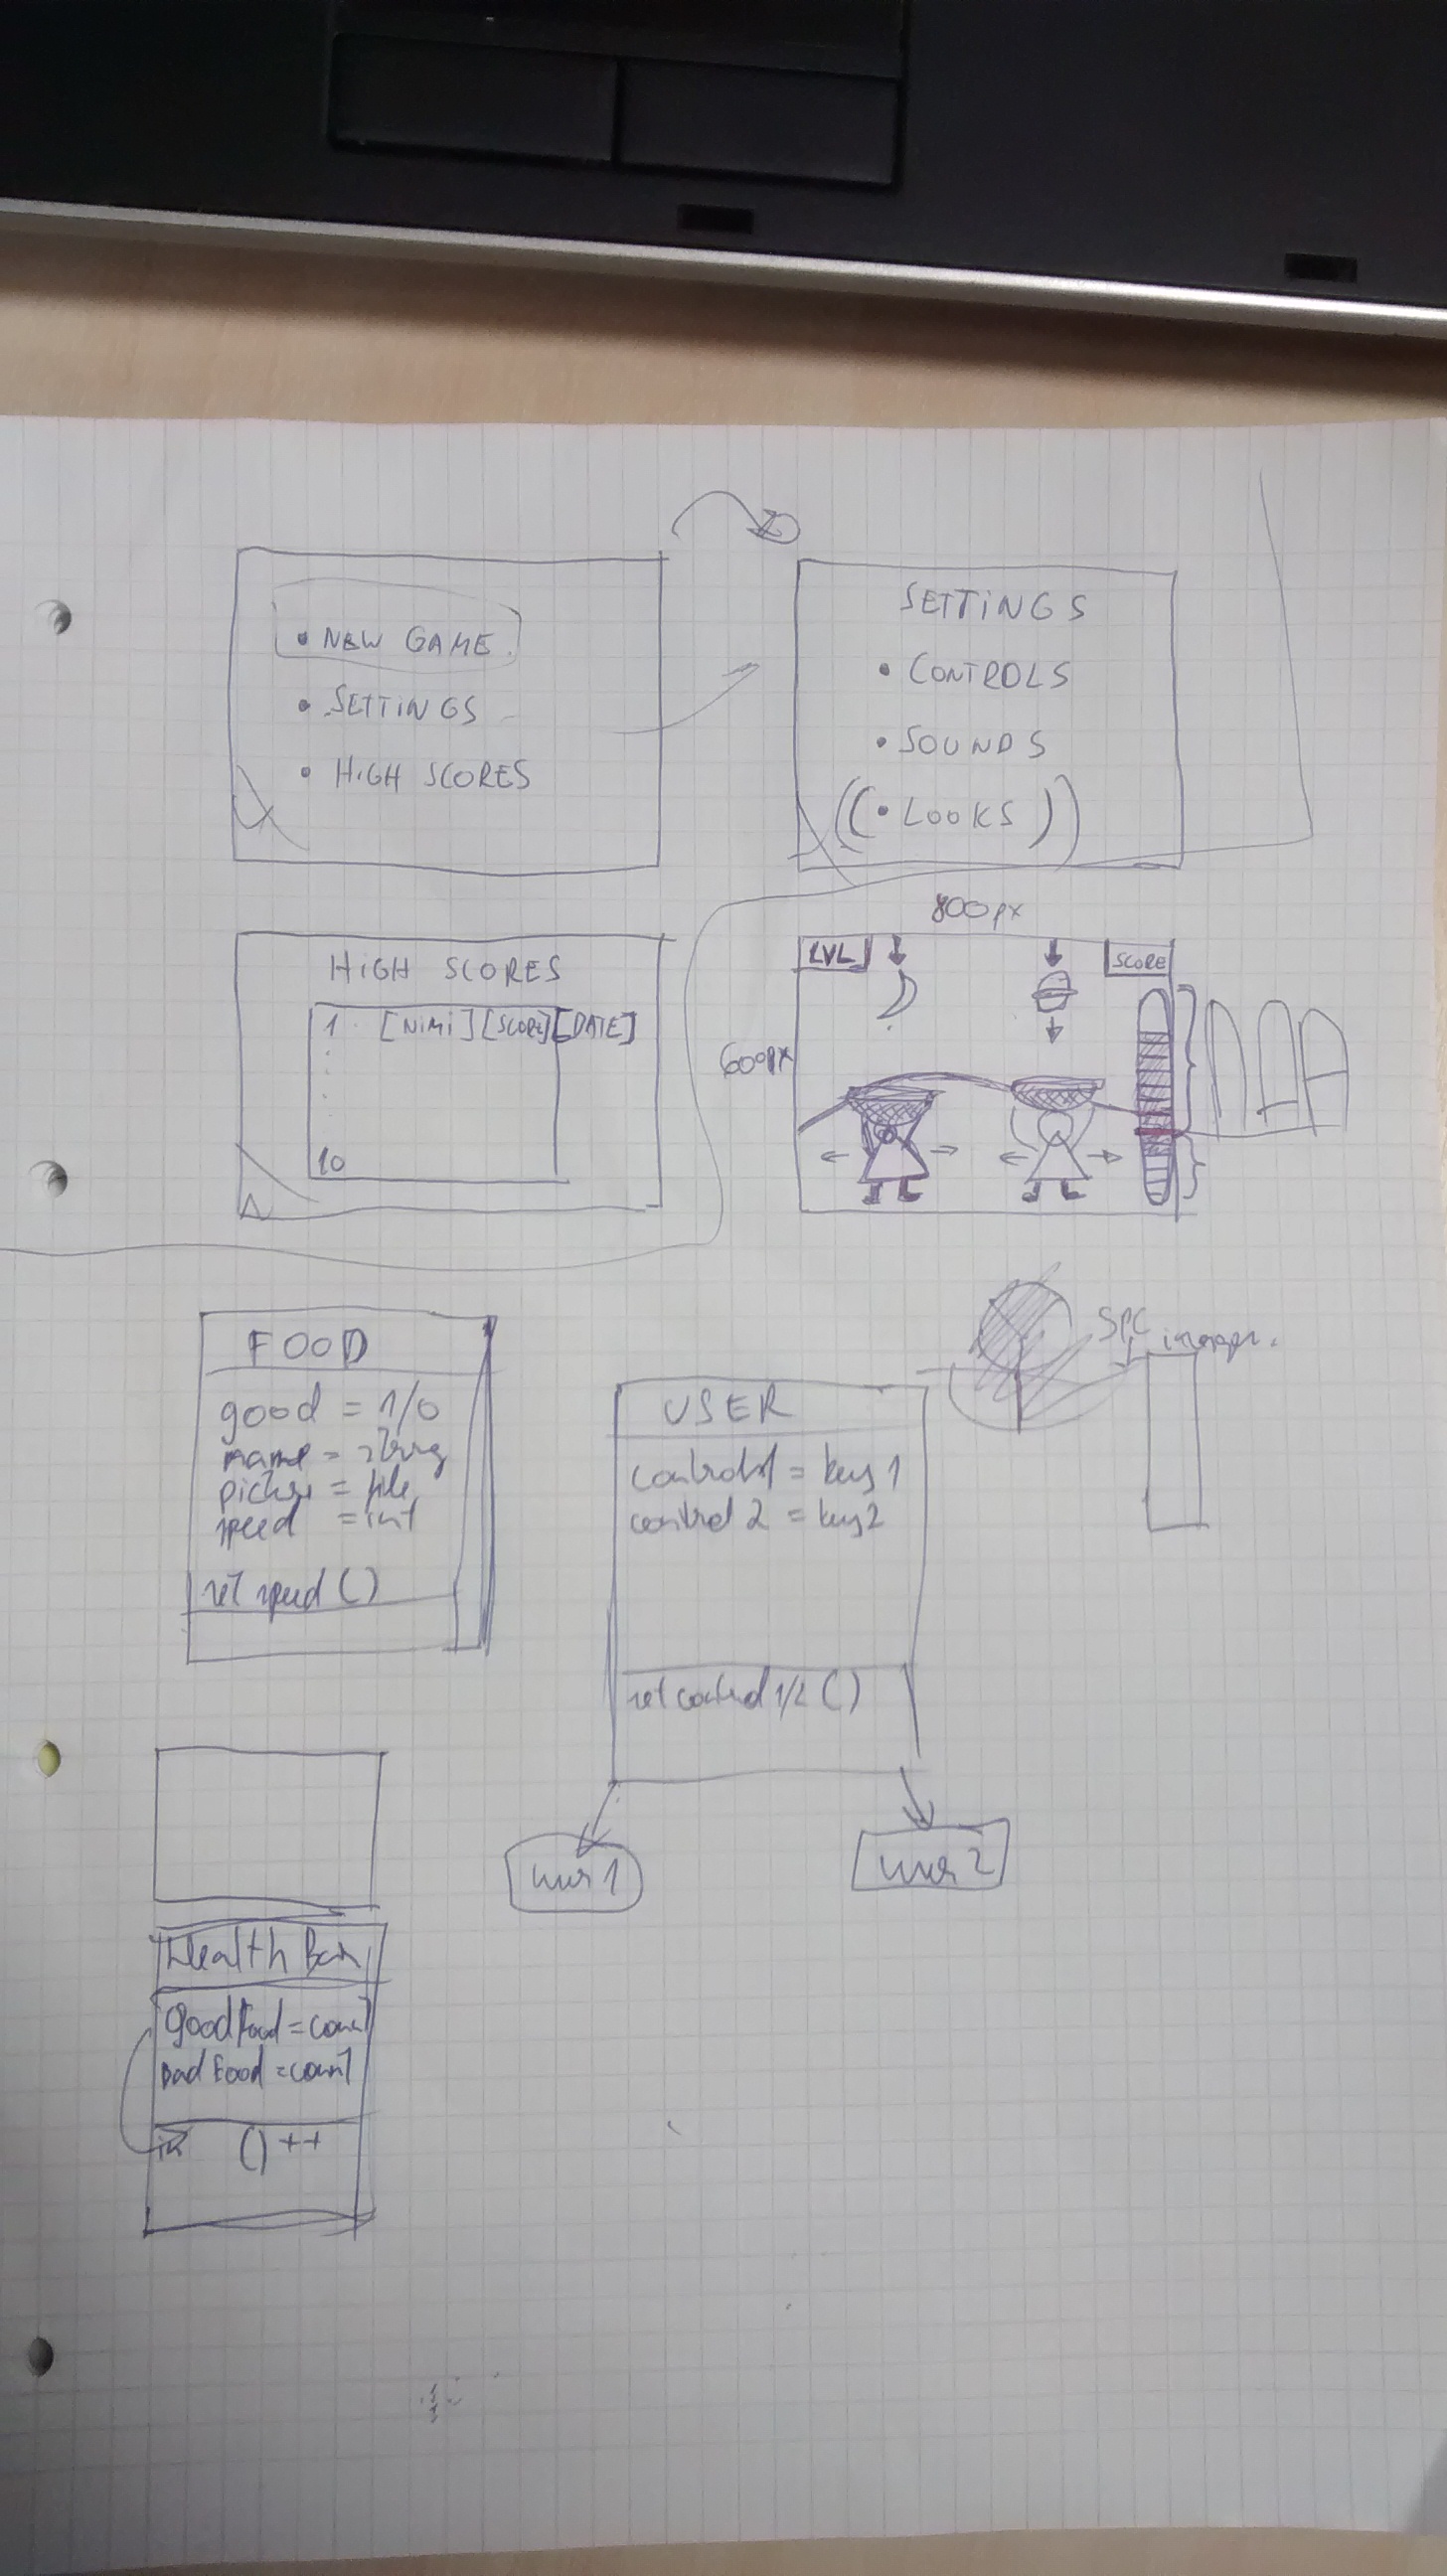 • NEW GAME
• SETTINGS
• HIGH SCORES
SETTINGS
• CONTROLS
• SOUNDS
((• LOOKS))
HIGH SCORES
1. [NIMI] [SCORE] [DATE]
10
800px
LVL
SCORE
600px
FOOD
good = 1/0
name = string
picture = file
speed = int
set speed ()
USER
control1 = key 1
control 2 = key 2
set control 1/2 ()
user 1
user 2
SPC
Health Bar
good food = count
Bad Food = count
() ++